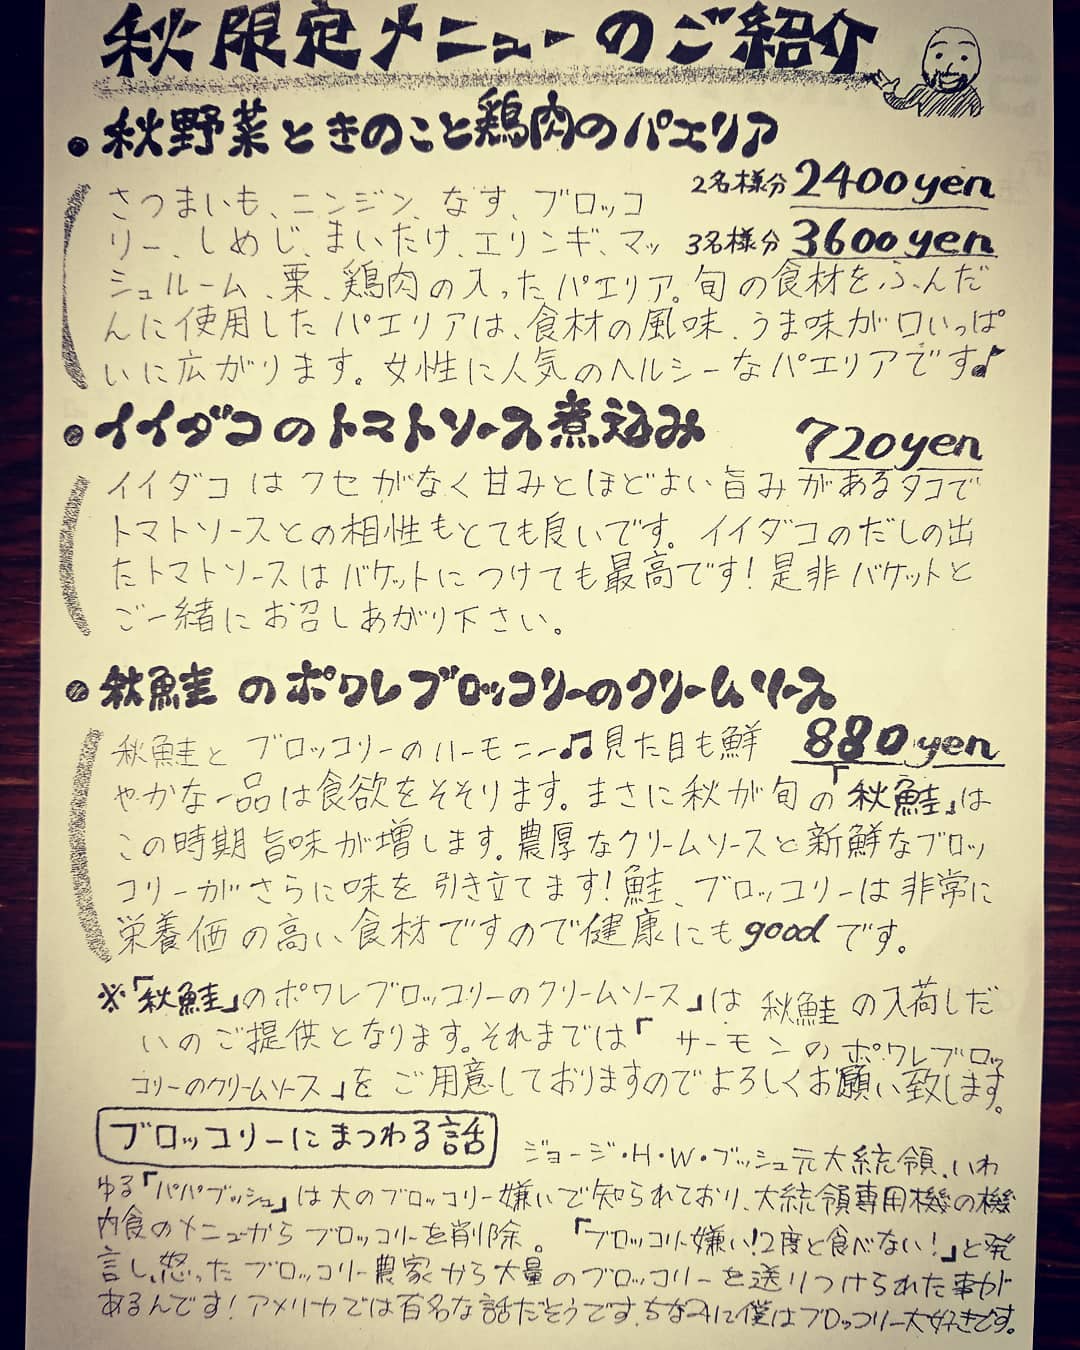 秋限定メニューのご紹介
・秋野菜ときのこと鶏肉のパエリア
2名様分 2400yen
3名様分 3600yen
さつまいも、ニンジン、なす、ブロッコ
リー、しめじ、まいたけ、エリンギ、マッ
シュルーム、栗、鶏肉の入ったパエリア。旬の食材をふんだ
んに使用したパエリアは、食材の風味、うま味が口いっぱ
いに広がります。女性に人気のヘルシーなパエリアです♪
・イイダコのトマトソース煮込み
720yen
イイダコはクセがなく甘みとほどよい旨みがあるタコで
トマトソースとの相性もとても良いです。イイダコのだしの出
たトマトソースはバケットにつけても最高です!是非バケットと
ご一緒にお召しあがり下さい。
・秋鮭のポワレブロッコリーのクリームソース
880yen
秋鮭とブロッコリーのハーモニー♫見た目も鮮
やかな一品は食欲をそそります。まさに秋が旬の「秋鮭」は
この時期旨味が増します。濃厚なクリームソースと新鮮なブロッ
コリーがさらに味を引き立てます!鮭、ブロッコリーは非常に
栄養価の高い食材ですので健康にもgoodです。
※「秋鮭」のポワレブロッコリーのクリームソース」は秋鮭の入荷しだ
いのご提供となります。それまでは「サーモンのポワレブロッ
コリーのクリームソース」をご用意しておりますのでよろしくお願い致します。
ブロッコリーにまつわる話
ジョージ・H・W・ブッシュ元大統領、いわ
ゆる「パパブッシュ」は大のブロッコリー嫌いで知られており、大統領専用機の機
内食のメニューからブロッコリーを削除。「ブロッコリー嫌い!2度と食べない!」と発
言し、怒ったブロッコリー農家から大量のブロッコリーを送りつけられた事が
あるんです!アメリカでは有名な話だそうです。ちなみに僕はブロッコリー大好きです。